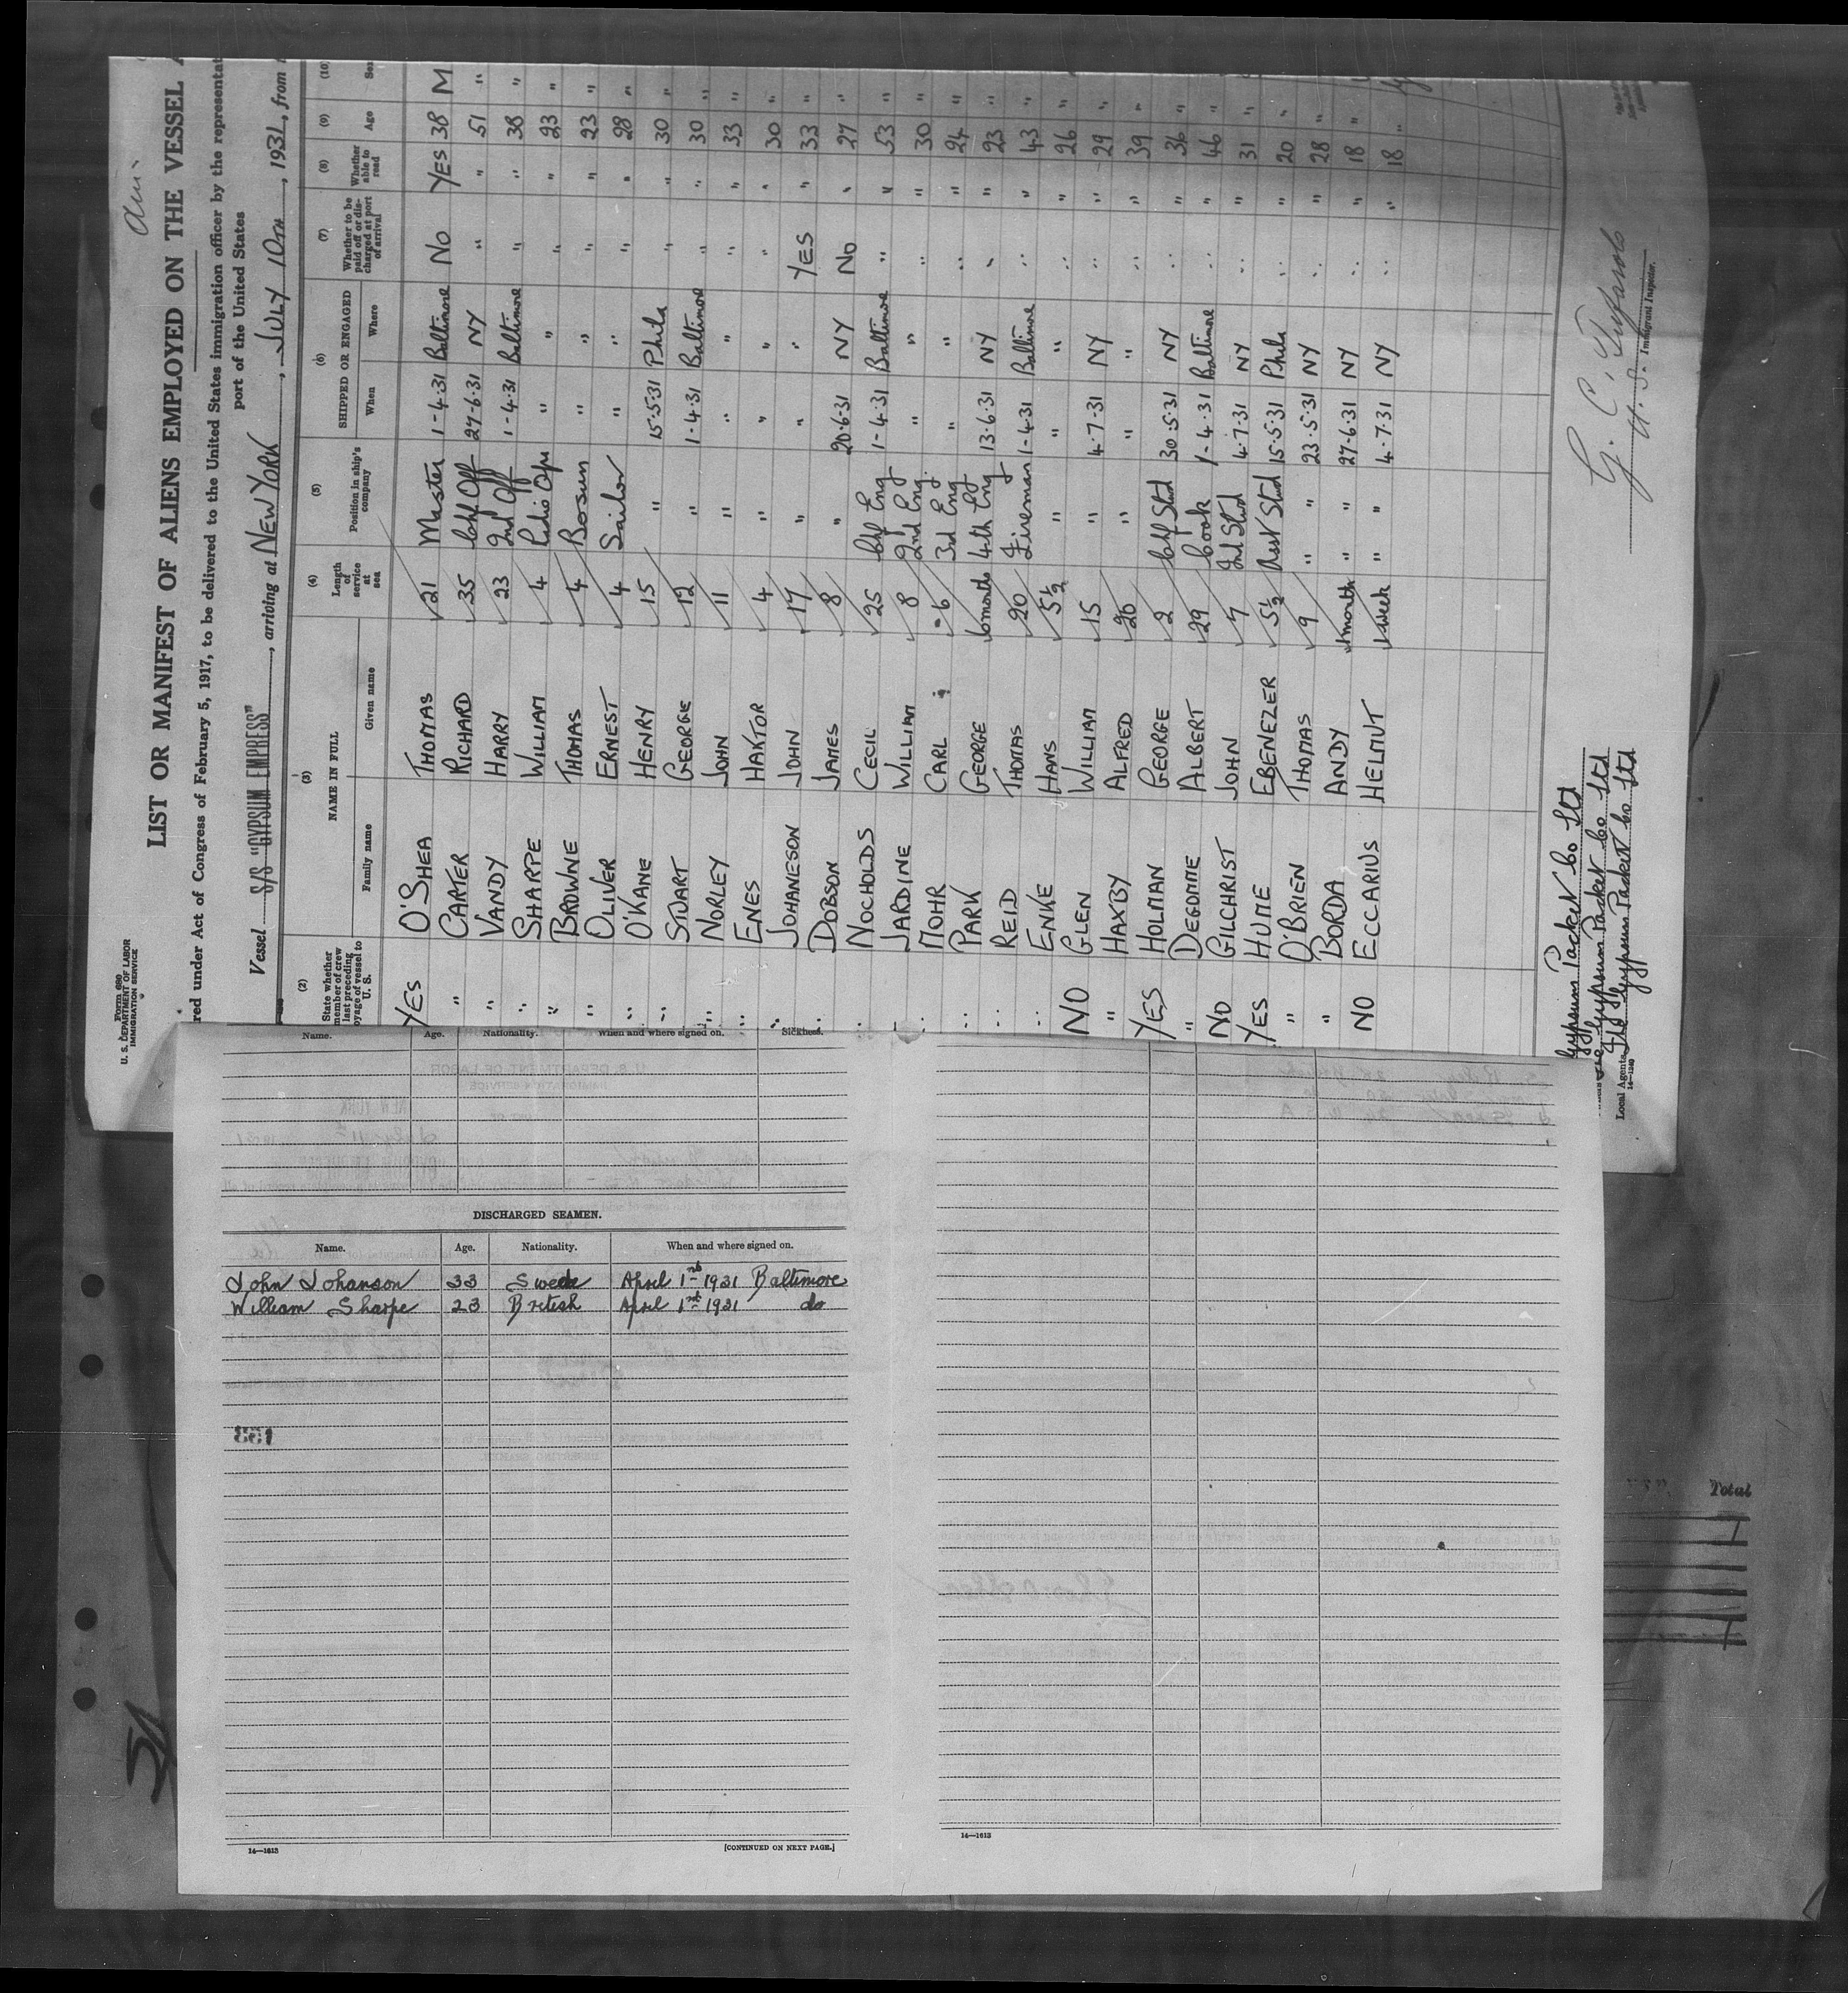 Form 680
U. S. DEPARTMENT OF LABOR
IMMIGRATION SERVICE
LIST OR MANIFEST OF ALIENS EMPLOYED ON THE VESSEL
red under Act of Congress of February 5, 1917, to be delivered to the United States immigration officer by the representat
port of the United States
Vessel S/S "GYPSUM EMPRESS", arriving at NEW YORK, JULY 10TH, 1931, from
(2) (3) (4) (5) (6) (7) (8) (9) (10)
State whether member of crew last preceding voyage of vessel to U. S. NAME IN FULL Family name Given name Length of service at sea Position in ship's company SHIPPED OR ENGAGED When Where Whether to be paid off or discharged at port of arrival Whether able to read Age Sex
YES O'SHEA THOMAS 21 Master 1-4-31 Baltimore NO YES 38 M
" CARTER RICHARD 35 Chf Off 27-6-31 NY " " 51 "
" VANDY HARRY 23 2nd Off 1-4-31 Baltimore " " 38 "
" SHARPE WILLIAM 4 Radio Opr " " " " 23 "
" BROWNE THOMAS 4 Bosun " " " " 23 "
" OLIVER ERNEST 4 Sailor " " " " 28 "
" O'KANE HENRY 15 " 15-5-31 Phila " " 30 "
" STUART GEORGE 12 " 1-4-31 Baltimore " " 30 "
" NORLEY JOHN 11 " " " " " 33 "
" ENES HAKTOR 4 " " " " " 30 "
" JOHANESON JOHN 17 " " " YES " 33 "
" DOBSON JAMES 8 " 20-6-31 NY NO " 27 "
" NOCHOLDS CECIL 25 Chf Eng 1-4-31 Baltimore " " 53 "
" JARDINE WILLIAM 8 2nd Eng " " " " 30 "
" MOHR CARL 6 3rd Eng " " " " 24 "
" PARK GEORGE 6 months 4th Eng 13-6-31 NY " " 23 "
" REID THOMAS 20 Fireman 1-4-31 Baltimore " " 43 "
" ENKE HANS 5½ " " " " " 26 "
NO GLEN WILLIAM 15 " 4-7-31 NY " " 29 "
" HAXBY ALFRED 20 " " " " " 39 "
YES HOLMAN GEORGE 2 Chf Stwd 30-5-31 NY " " 36 "
" DEGOMME ALBERT 29 Cook 1-4-31 Baltimore " " 46 "
NO GILCHRIST JOHN 7 2nd Stwd 4-7-31 NY " " 31 "
YES HUME EBENEZER 5½ Asst Stwd 15-5-31 Phila " " 20 "
" O'BRIEN THOMAS 9 " " 23-5-31 NY " " 28 "
" BORDA ANDY 1 month " " 27-6-31 NY " " 18 "
NO ECCARIUS HELMUT 1 week " " 4-7-31 NY " " 18 "
Gypsum Packet Co Ltd
The Gypsum Packet Co Ltd
Local Agents The Gypsum Packet Co Ltd
14—1240
U. S. Immigrant Inspector.
Name. Age. Nationality. When and where signed on. Sickness.
DISCHARGED SEAMEN.
Name. Age. Nationality. When and where signed on.
John Johanson 33 Swede April 1st 1931 Baltimore
William Sharpe 23 British April 1st 1931 do
14—1613
[CONTINUED ON NEXT PAGE.]
14—1613
Total